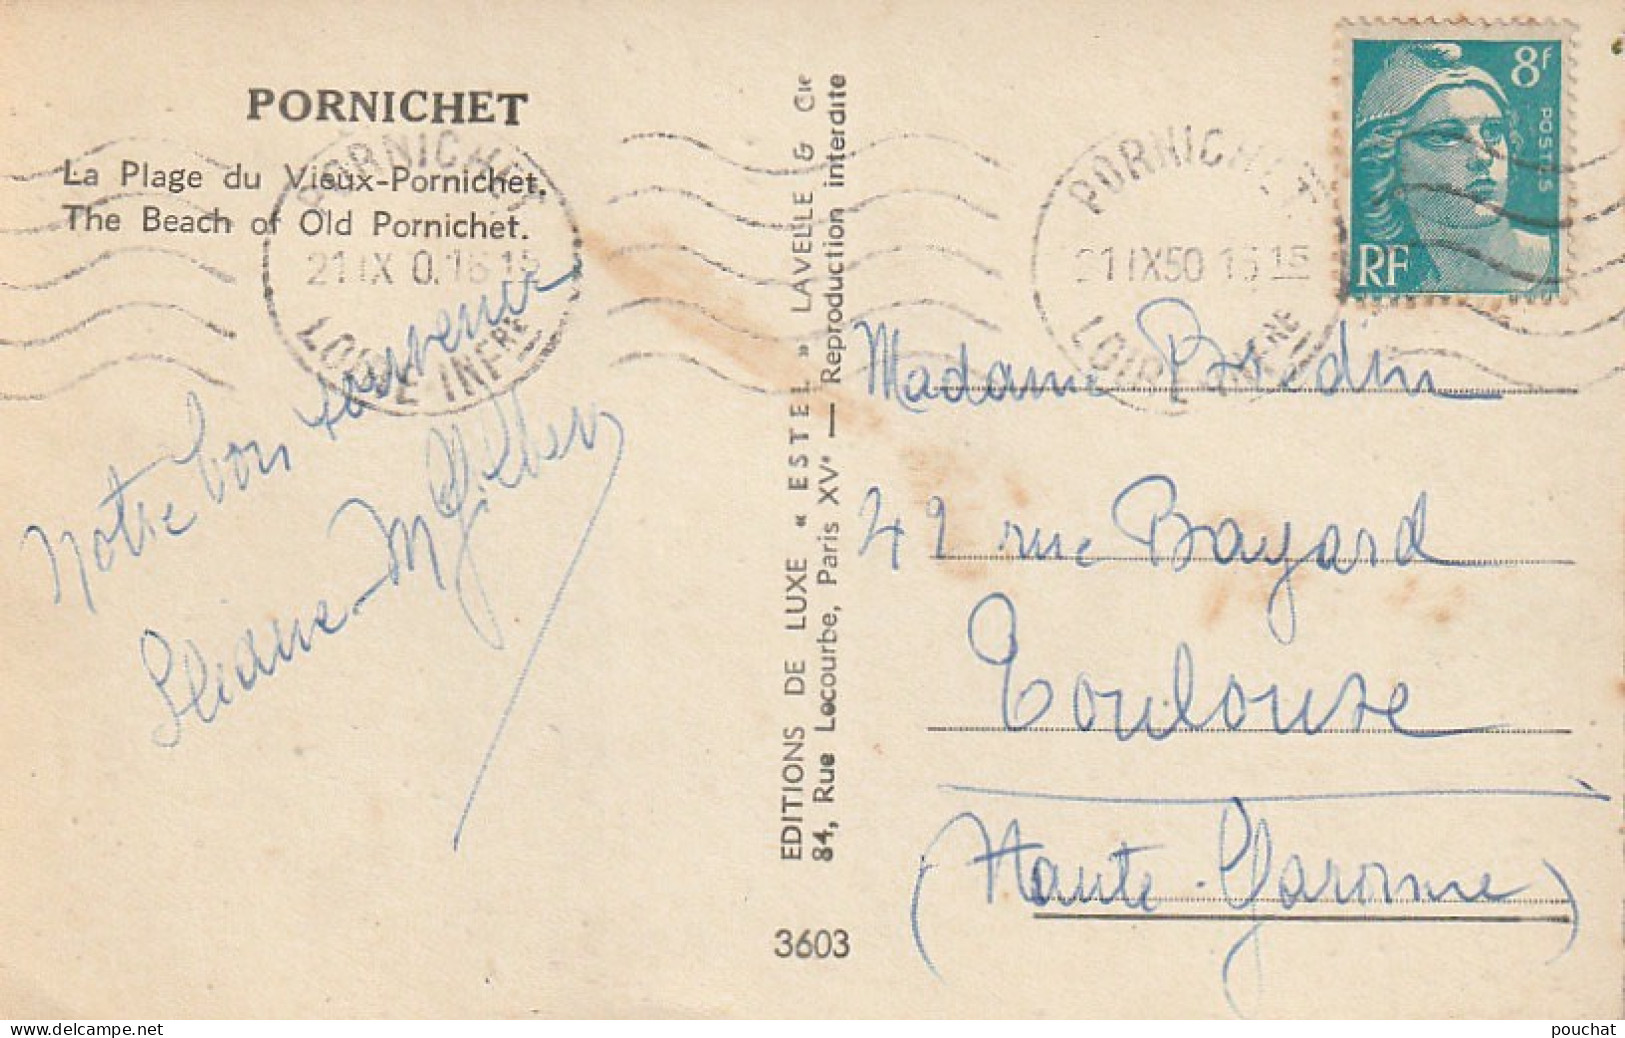 PORNICHET
La Plage du Vieux-Pornichet.
The Beach of Old Pornichet.
PORNICHET
21 IX 0.16 15
LOIRE INFRE
Notre bon souvenir
Liliane - M Gilbert
EDITIONS DE LUXE « ESTEL » LAVELLE & Cie
84, Rue Lecourbe, Paris XVe — Reproduction interdite
3603
PORNICHET
21 IX50 15 15
LOIRE INFRE
8f
POSTES
RF
Madame
49 rue Bayard
Toulouse
(Haute-Garonne)
pouchat